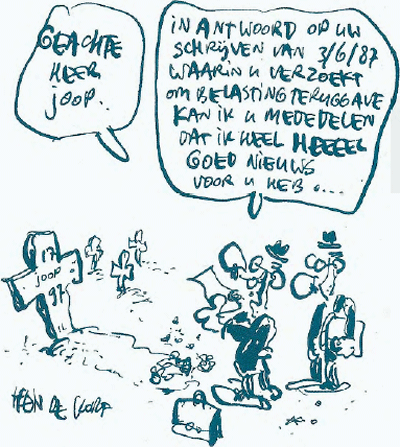 GEACHTE
HEER
JOOP..
IN ANTWOORD OP UW
SCHRIJVEN VAN 3/6/87
WAARIN U VERZOEKT
OM BELASTINGTERUGGAVE
KAN IK U MEDEDELEN
DAT IK HEEL HEEEEL
GOED NIEUWS
VOOR U HEB ....
17
JOOP
97
DE